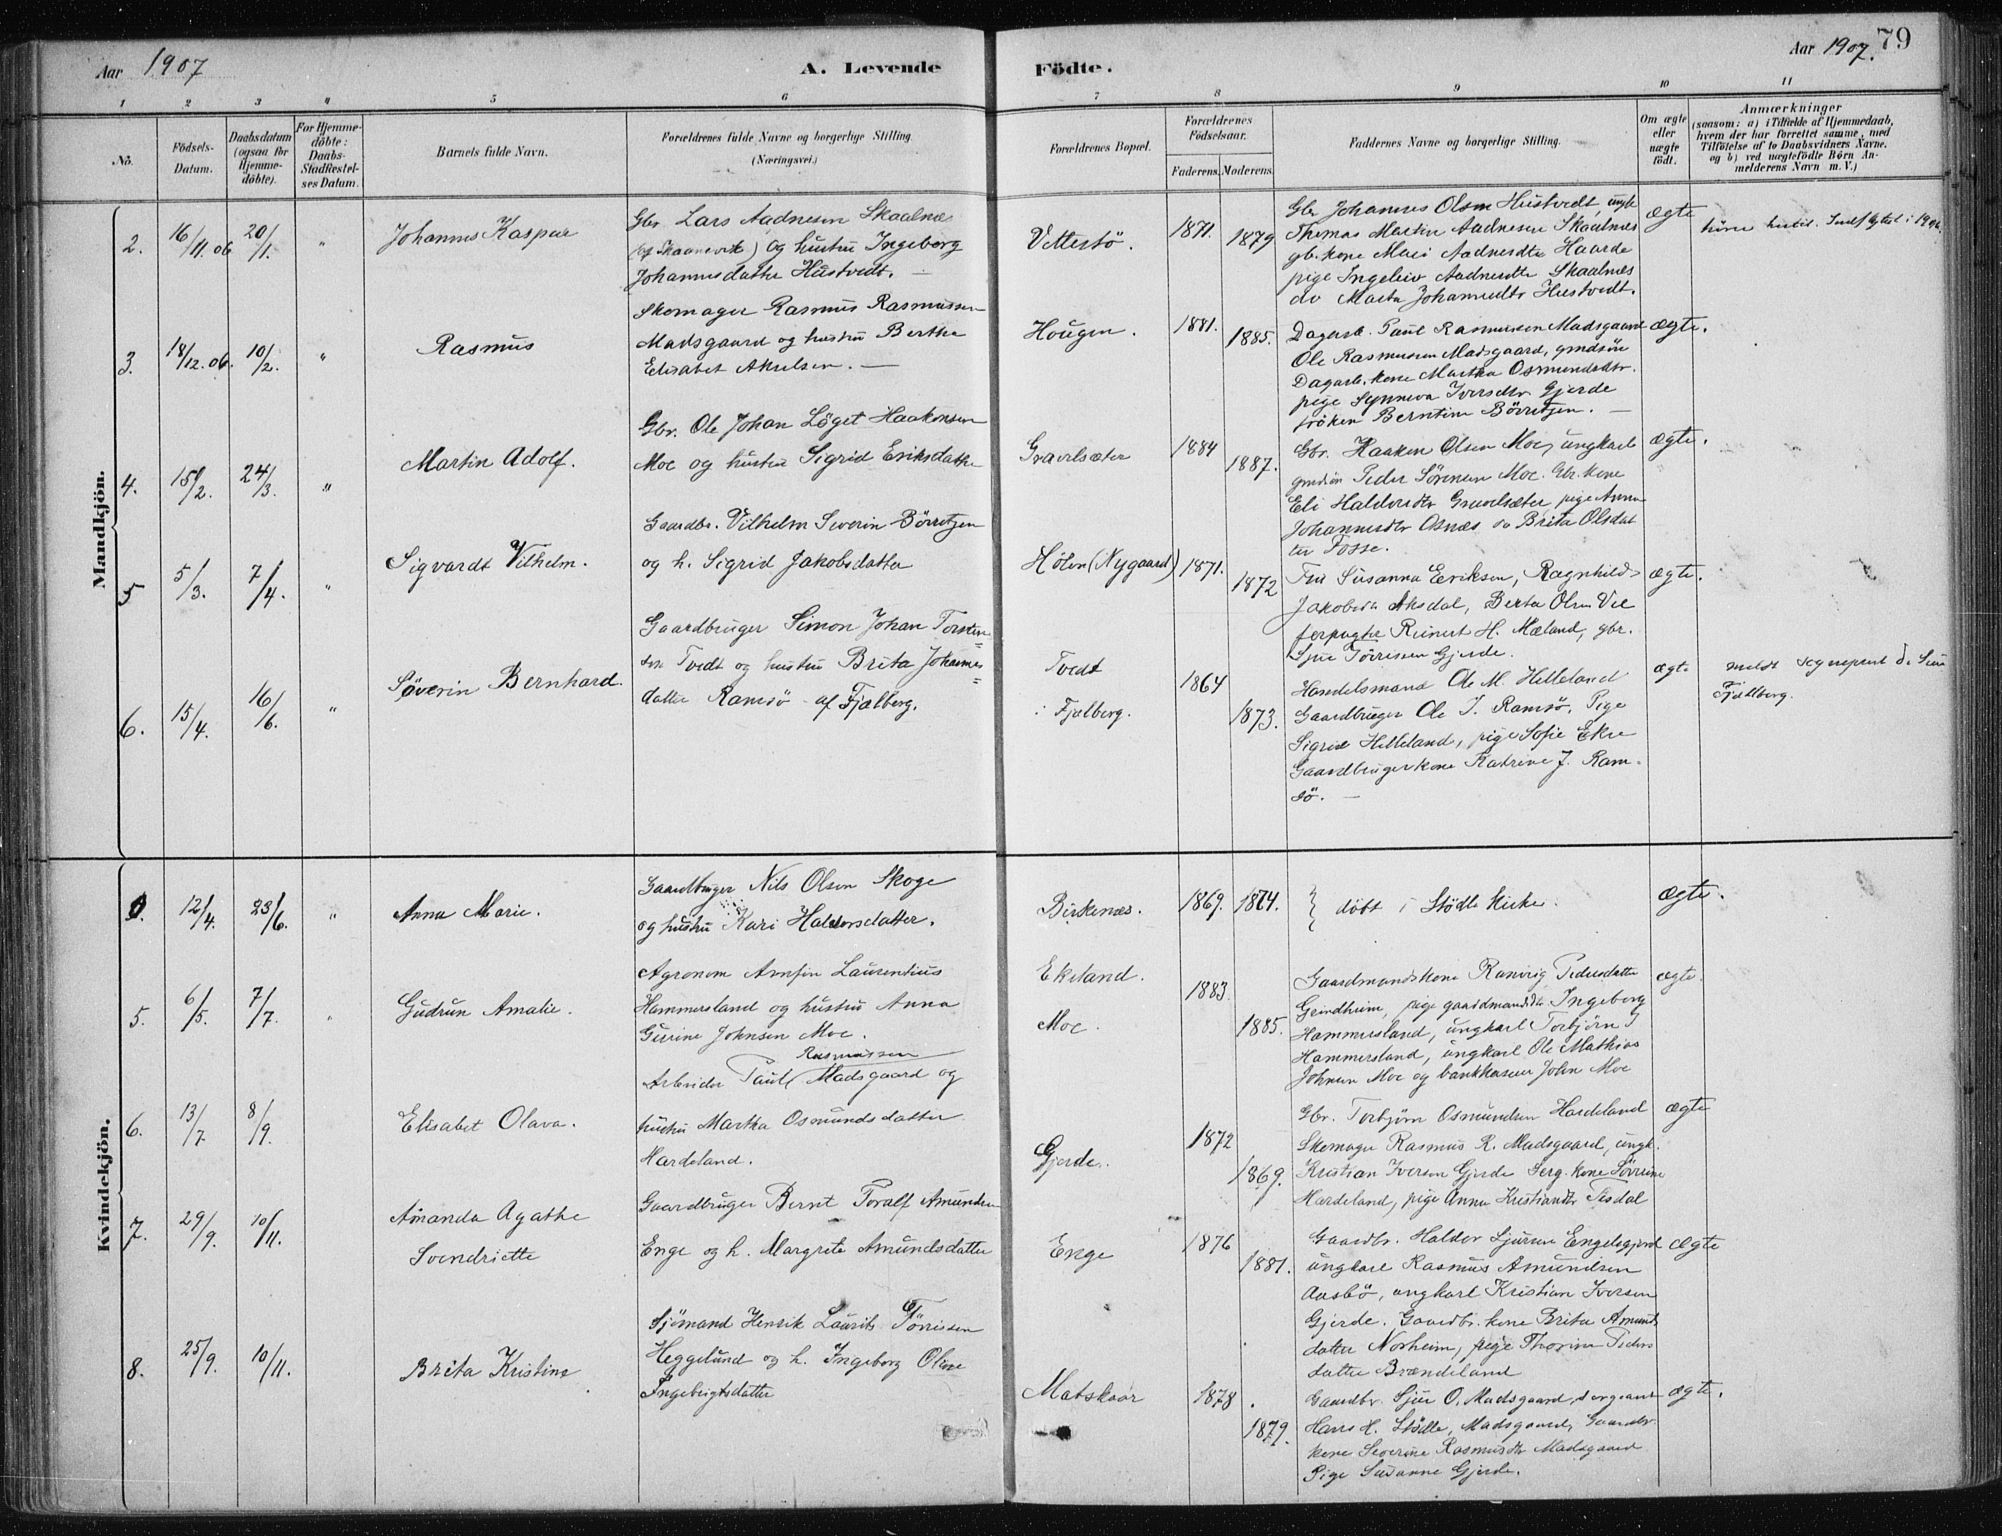 Aar 1907
A. Levende Födte.
Aar 1907. 79
1 2 3 4 5 6 7 8 9 10 11
No. Födsels-Datum. Daabsdatum (ogsaa for Hjemme-döbte). For Hjemme-döbte: Daabs-Stadfæstelses Datum. Barnets fulde Navn. Forældrenes fulde Navne og borgerlige Stilling. (Næringsvei.) Forældrenes Bopæl. Forældrenes Födselsaar. Faderens. Moderens. Faddernes Navne og borgerlige Stilling. Om ægte eller uægte födt. Anmærkninger (saasom: a) i Tilfælde af Hjemmedaab, hvem der har forrettet samme, med Tilföielse af to Daabsvidners Navne, og b) ved uægtefödte Börn Anmelderens Navn m. V.)
Mandkjön.
2. 16/11.06 20/1. " Johannes Kaspar
Gbr Lars Aadnesen Skaalnæs
(af Skaanevik) og hustru Ingeborg
Johannesdatter Hustvedt. —
Vettestö. 1871. 1879
Gbr Johannes Olsen Hustvedt, ungk
Thomas Martin Aadnesen Skaalnæs
gb. kone Mari Aadnesdtr Haarde
pige Ingeleiv Aadnesdtr Skaalnæs
do Marta Johannesdtr Hustvedt.
ægte
3. 18/12.06. 10/2. " Rasmus
Skomager Rasmus Rasmussen
Madsgaard og hustru Bertha
Elisabet Akselsen. —
Hougen. 1881. 1885.
Dagarb. Paul Rasmussen Madsgaard
Ole Rasmussen Madsgaard, gmdsön
Dagarb. kone Martha Osmundsdtr.
pige Synneva Iversdtr Gjerde
fröken Berntine Börretzen. —
ægte.
4. 15/2. 24/3. " Martin Adolf.
Gbr. Ole Johan Löget Haakonsen
Moe og hustru Sigrid Eriksdatter
Gravelsæter 1884 1887.
Gbr. Haaken Olsen Moe, ungkarl
gmdsön Peder Sörensen Moe. Gbr. kone
Eli Haldorsdtr Gravelsæter, pige Anna
Johannesdtr Osnæs og Brita Olsdat
ter Fosse.
ægte.
5 5/3. 7/4. " Sigvardt Vilhelm.
Gaardbr. Vilhelm Severin Börretzen
og h. Sigrid Jakobsdatter
Hölen (Nygaard) 1871. 1872
Fru Susanna Eriksen, Ragnhild
Jakobsdtr Aksdal, Berta Olsen Vee
forpagter Reinert H. Mæland, gbr.
Sjur Törresen Gjerde.
ægte.
6. 15/4. 16/6. " Söverin Bernhard.
Gaardbruger Simon Johan Torsten
sen Tvedt og hustru Brita Johannes
datter Ramsö - af Fjelberg.
Tvedt
i Fjelberg. 1864 1873.
Handelsmand Ole M. Helleland
Gaardbruger Ole J. Ramsö, Pige
Sigrid Helleland, pige Sofie Ekre
Gaardbrugerkone Katrine J. Ram-
sö. —
ægte
Fjelberg.
Kvindekjön.
12/4. 23/6. " Anna Marie.
Gaardbruger Nils Olsen Skoge
og hustru Kari Haldorsdatter.
Birkenæs. 1869. 1874.
döbt i Stödle Kirke.
ægte.
5. 6/5. 7/7. " Gudrun Amalie.
Agronom Arnfin Laurentius
Hammersland og hustru Anna
Gurine Johnsen Moe.
Ekeland.
Moe. 1883. 1885.
Gaardmandskone Ranveig Pedersdatter
Grindheim, pige gaardmandsdtr Ingeborg
Hammersland, ungkarl Torbjörn J
Hammersland, ungkarl Ole Mathias
Johnsen Moe og bankkasserer John Moe
ægte.
6. 13/7. 8/9. Elisabet Olava.
Rasmussen
Arbeider Paul Madsgaard og
hustru Martha Osmundsdatter
Hardeland.
Gjerde. 1872 1869.
Gbr. Torbjörn Osmundsen Hardeland
Skomager Rasmus R. Madsgaard, ungk.
Kristian Iversen Gjerde Serg. kone Sörine
Hardeland, pige Anna Kristiandtr Tesdal
ægte
7. 29/9. 10/11. Amanda Agathe
Svendriette
Gaardbruger Bernt Toralf Amundsen
Enge og h. Margrete Amundsdatter
Enge 1876 1881.
Gaardbr. Haldor Sjursen Engelsgjerd
ungkarl Rasmus Amundsen
Aasbö, ungkarl Kristian Iversen
Gjerde. Gaardbr. kone Brita Amunds
datter Norheim, pige Thorine Peders
datter Brændeland
ægte
8. 25/9. 10/11. Brita Kristine
Sjömand Henrik Laurits Törrissen
Heggelund og h. Ingeborg Oline
Ingebrigtsdatter
Matskaar 1878 1879.
Gaardbr. Sjur O. Madsgaard, sergeant
Hans H. Stödle, Madsgaard, Gaardbr.
kone Severine Rasmusdtr Madsgaard
Pige Susanne Gjerde.
ægte.